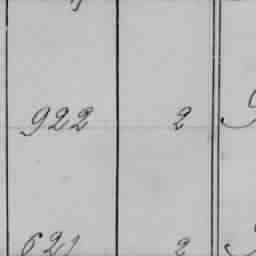 922 2
621 2